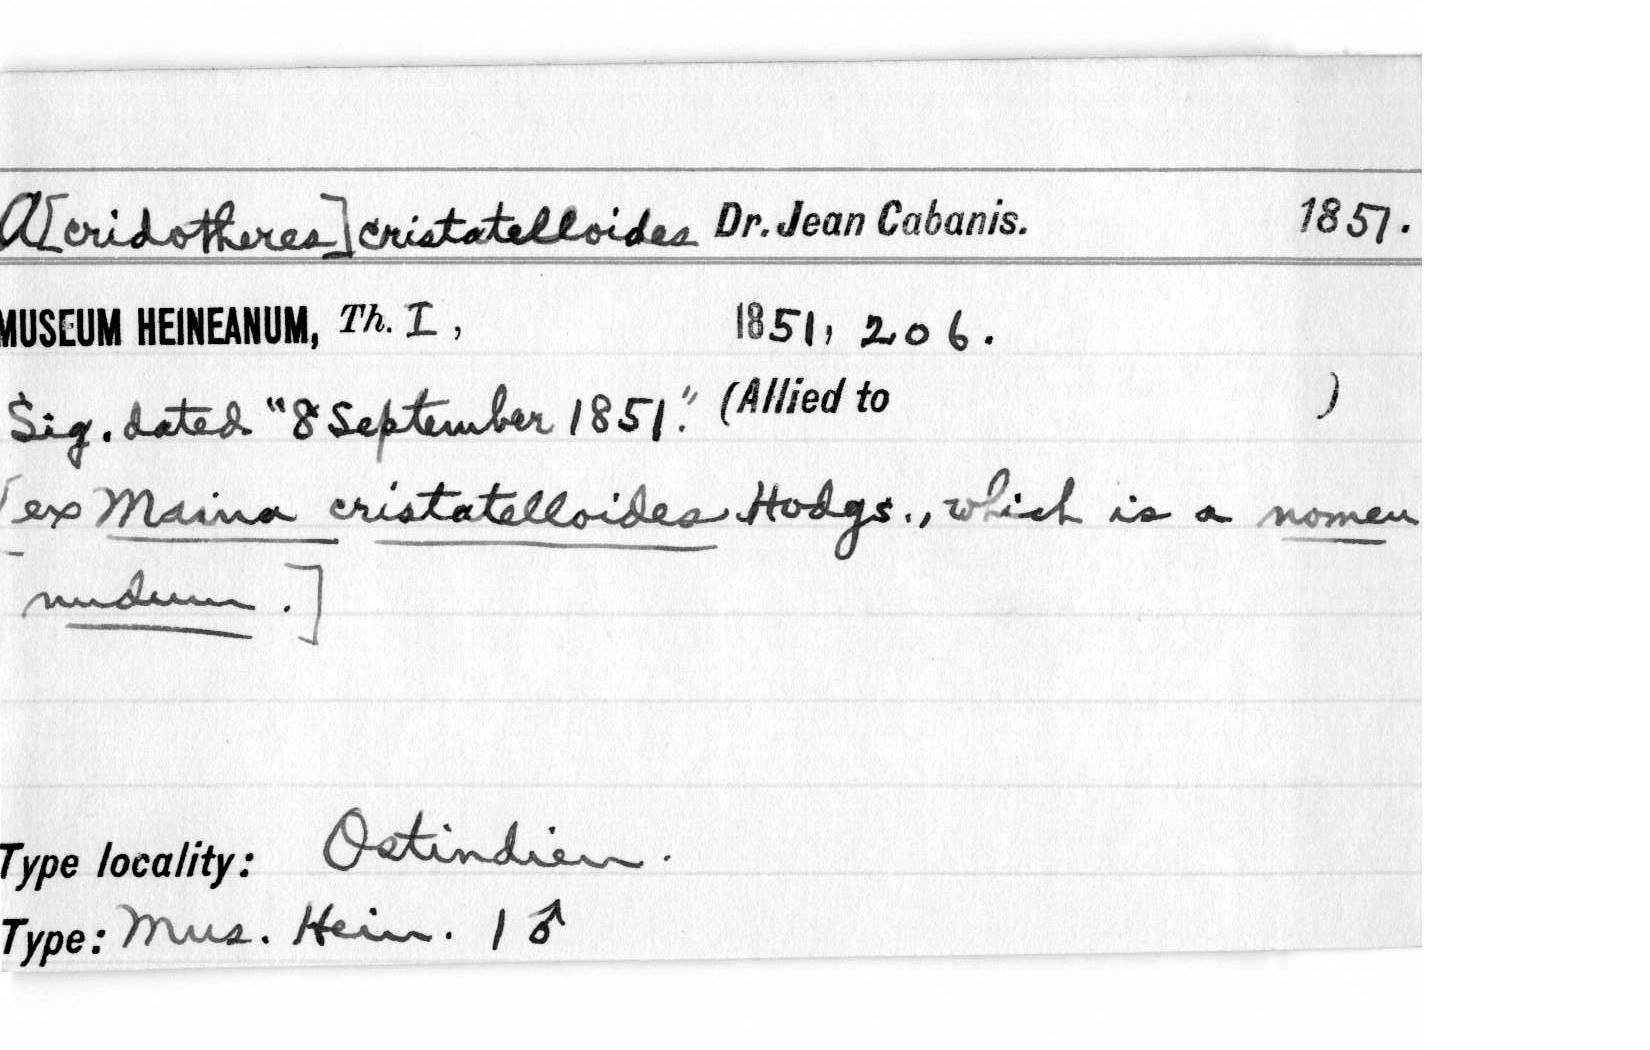 A[cridotheres] cristatelloides Dr. Jean Cabanis. 1851.
MUSEUM HEINEANUM, Th. I, 1851, 206.
Sig. dated "8 September 1851." (Allied to )
[ex Maina cristatelloides Hodgs., which is a nomen
nudum.]
Type locality: Ostindien.
Type: Mus. Hein. 1 ♂